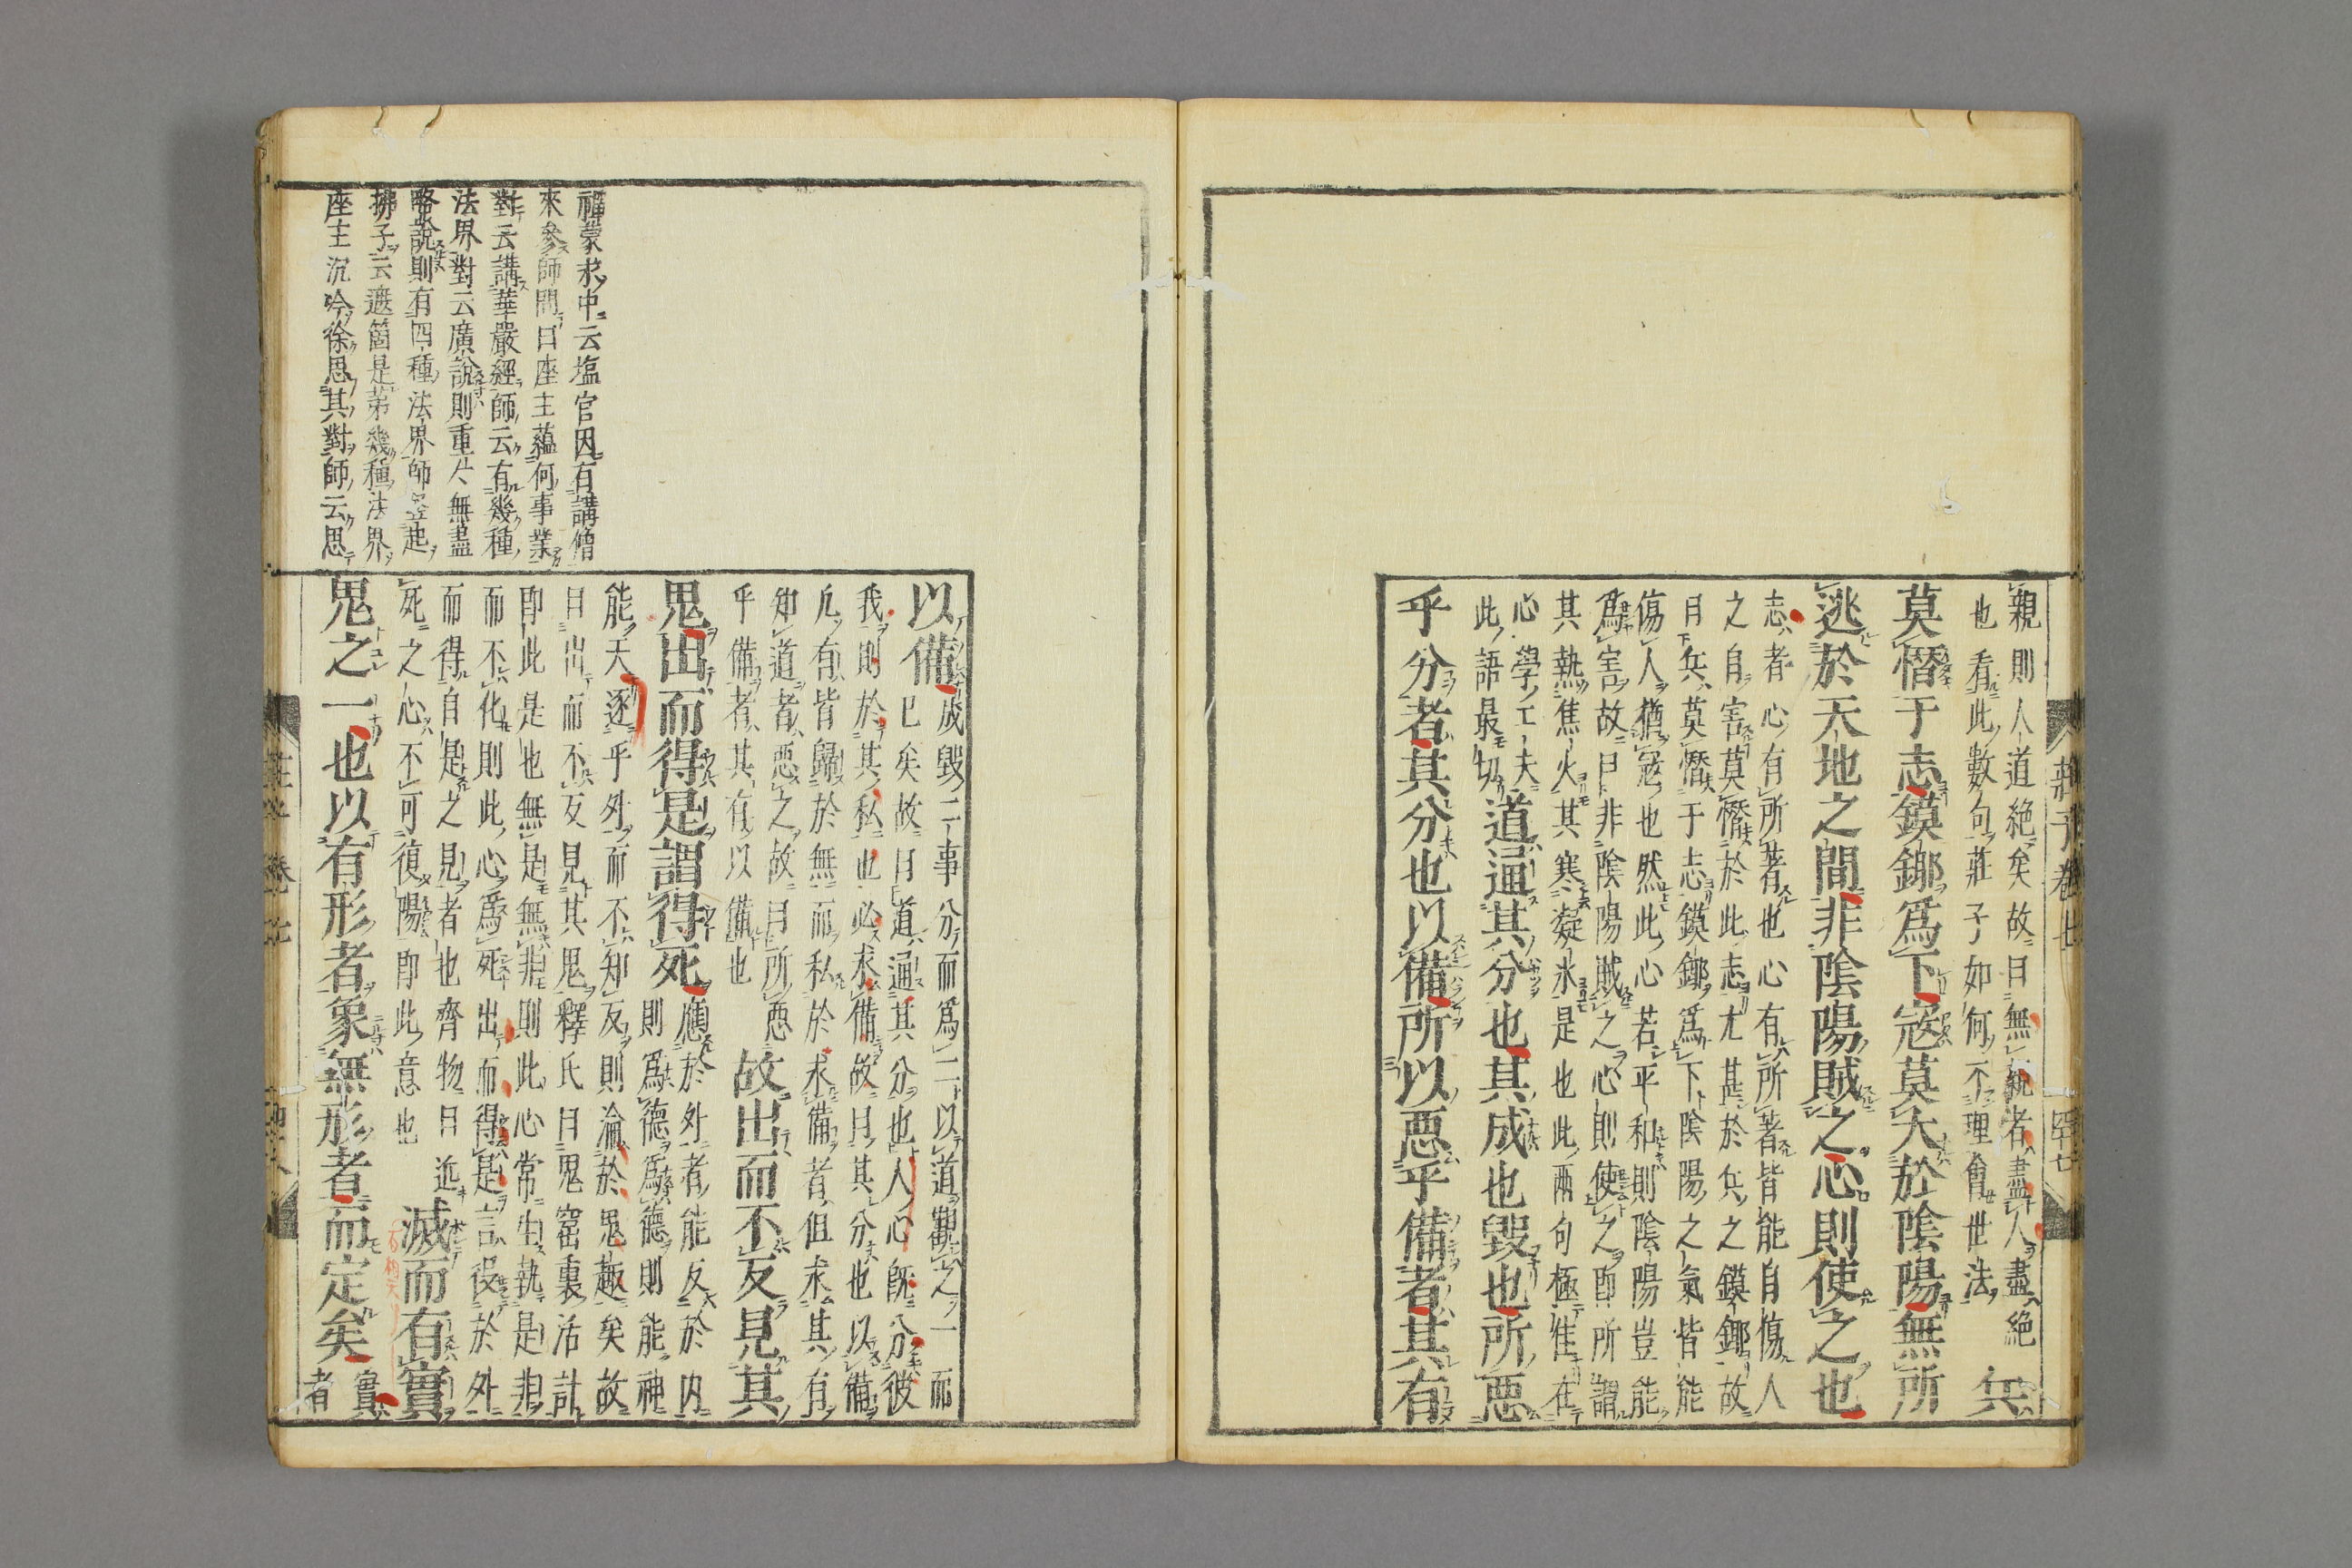 親則人道絕矣故曰無親者盡人盡絕
也看此數句莊子如何不理會世法
兵
莫憯于志鏌鎁爲下寇莫大於陰陽無所
逃於天地之間非陰陽賊之心則使之也
志者心有所著也心有所著皆能自傷人
之自害莫憯於此志尤甚於兵之鏌鎁故
曰兵莫憯于志鏌鎁爲下陰陽之氣皆能
傷人猶寇也然此心若平和則陰陽豈能
爲害故曰非陰陽賊之心則使之即所謂
其熱焦火其寒凝氷是也此兩句極佳在
心學工夫
此語最切
道通其分也其成也毀也所惡
乎分者其分也以備所以惡乎備者其有
莊子卷七
四十七
以備
成毀二事分而爲二以道觀之一而
已矣故曰道通其分也人心旣分彼
我則於其私也必求備故曰其分也以備
凢有皆歸於無而私於求備者但求其有
知道者惡之故曰所惡
乎備者其有以備也
故出而不反見其
鬼出而得是謂得死
應於外者能反於内
則爲德爲德則能神
能天逐乎外而不知反則淪於鬼趣矣故
曰出而不反見其鬼釋氏曰鬼窟裏活計
即此是也無是無非則此心常生執是非
而不化則此心爲死出而得是言役於外
而得自是之見者也齊物曰近
死之心不可復陽即此意也
滅而有實
鬼之一也以有形者象無形者而定矣
實
者
禪蒙求中云塩官因有講僧
來參師問曰座主蘊何事業
對云講華嚴經師云有幾種
法界對云廣說則重〻無盡
略說則有四種法界師竪起
拂子云這箇是第幾種法界
座主沉吟徐思其對師云思